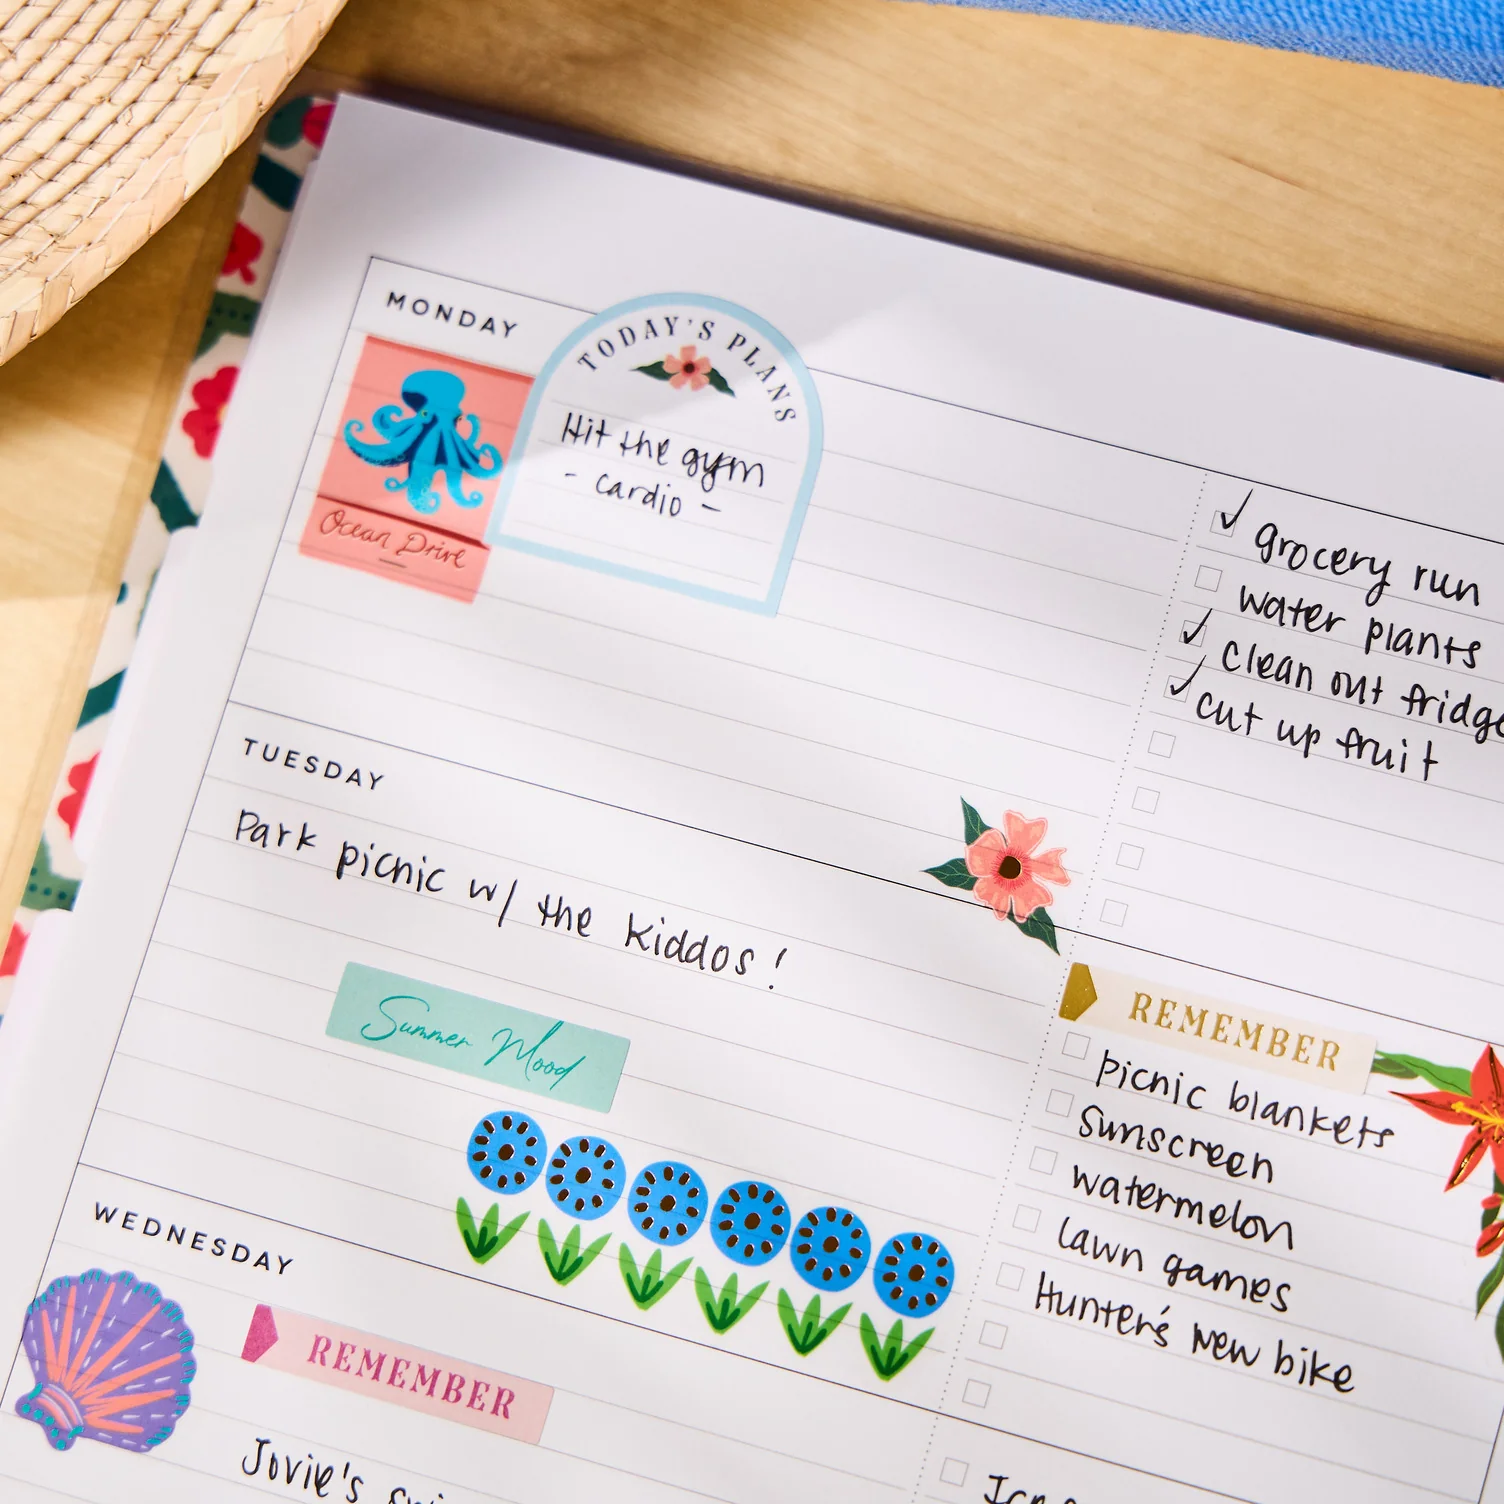 MONDAY
TODAY'S PLANS
Hit the gym
- cardio -
Ocean Drive
grocery run
water plants
clean out fridge
cut up fruit
TUESDAY
Park picnic w/ the kiddos!
Summer Mood
REMEMBER
picnic blankets
Sunscreen
watermelon
Lawn games
Hunter's new bike
WEDNESDAY
REMEMBER
Jovie's